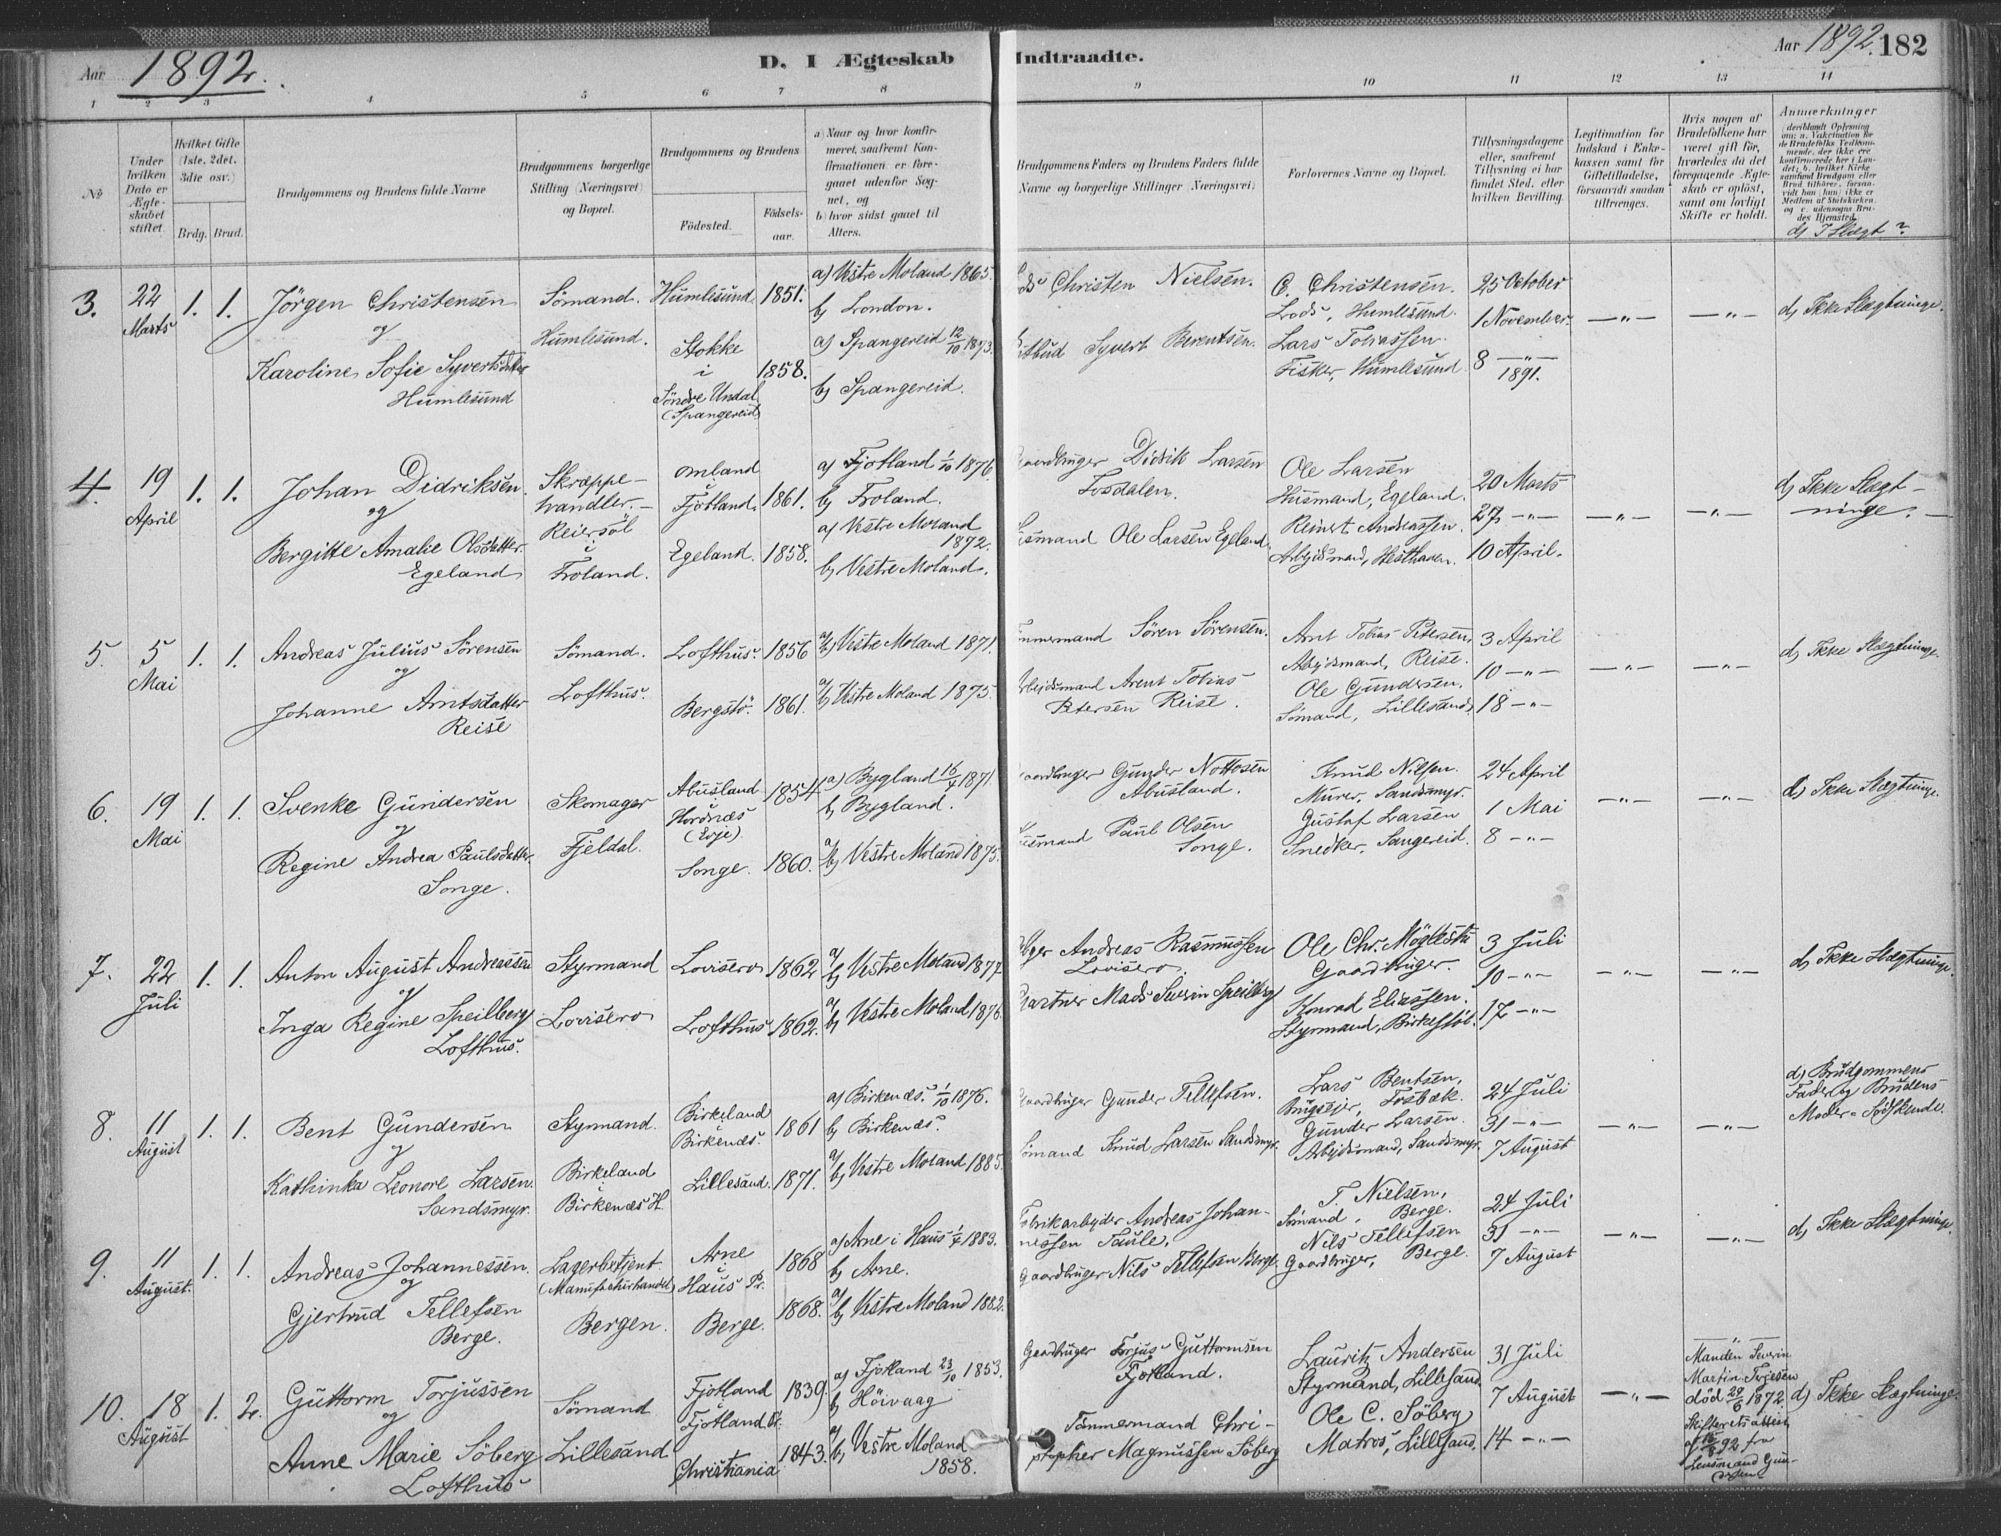 Aar 1892.
D. I Ægteskab Indtraadte.
Aar 1892. 182
1 2 3 4 5 6 7 8 9 10 11 12 13 14
№
Under hvilken Dato er Ægteskabet stiftet.
Hvilket Gifte (1ste, 2det, 3die osv.)
Brdg. Brud.
Brudgommens og Brudens fulde Navne
Brudgommens borgerlige Stilling (Næringsvei) og Bopæl.
Brudgommens og Brudens
Födested.
Födselsaar.
a) Naar og hvor konfirmeret, saafremt Konfirmationen er foregaaet udenfor Sognet, og
b) hvor sidst gaaet til Alters.
Brudgommens Faders og Brudens Faders fulde Navne og borgerlige Stillinger (Næringsvei)
Forlovernes Navne og Bopæl.
Tillysningsdagene eller, saafremt Tillysning ei har fundet Sted, efter hvilken Bevilling.
Legitimation for Indskud i Enkekassen samt for Giftetilladelse, forsaavidt saadan tiltrænges.
Hvis nogen af Brudefolkene har været gift för, hvorledes da det foregaaende Ægteskab er oplöst, samt om lovligt Skifte er holdt.
Anmerkninger
d) I Slægt?
3. 22 Marts 1. 1.
Jörgen Christensen
og
Karoline Sofie Syvertsdatter
Humlesund
Sömand.
Humlesund.
Humlesund 1851.
Stokke
i
Söndre Undal
(Spangereid)
1858.
a) Vestre Moland 1865.
b) London.
a) Spangereid 12/10 1873.
b) Spangereid.
Lods Christen Nielsen.
Syvert Berentsen.
C. Christensen.
Lods, Humlesund.
Lars Tobiassen.
Fisker, Humlesund
25 October
1 November.
8 —„—
1891.
—„— —„—
d) Ikke Slægtninge.
4. 19 April 1. 1.
Johan Didriksen
og
Bergitte Amalie Olsdatter
Egeland
Skræppe-
handler.
Reiersöl
i
Froland.
Omland
i
Fjotland. 1861.
Egeland. 1858.
a) Fjotland 1/10 1876
b) Froland.
a) Vestre Moland
1872.
b) Vestre Moland.
Gaardbruger Didrik Larsen
Fosdalen.
Husmand Ole Larsen Egeland.
Ole Larsen
Husmand, Egeland.
Reinert Andreassen.
Arbeidsmand, Hesthaven.
20 Marts
27 —„—
10 April.
—„— —„—
d) Ikke Slægt-
ninge.
5. 5 Mai 1. 1.
Andreas Julius Sörensen
og
Johanne Arntsdatter
Reise
Sömand.
Lofthus.
Lofthus. 1856
Bergstö. 1861.
a/b) Vestre Moland 1871.
a/b) Vestre Moland 1875.
Tömmermand Sören Sörensen.
Arbeidsmand Arent Tobias
Petersen Reise.
Arnt Tobias Petersen,
Arbeidsmand, Reise.
Ole Gundersen.
Sömand, Lillesand.
3 April
10 —„—
18 —„—
—„— —„—
d) Ikke Slægtninge.
6. 19 Mai 1. 1.
Svenke Gundersen
og
Regine Andrea Paulsdatter
Songe.
Skomager
Fjeldal.
Abusland
i
Hordnæs
(Evje)
1854.
Songe. 1860.
a) Bygland 16/4 1871.
b) Bygland.
a/b) Vestre Moland 1875.
Gaardbruger Gunder Nottosen
Abusland.
Husmand Paul Olsen
Songe.
Knud Nilsen.
Murer, Sandsmyr.
Gustaf Larsen
Snedker, Sangereid.
24 April
1 Mai
8 —„—
—„— —„—
d) Ikke Slægtninge.
7. 22 Juli 1. 1.
Anton August Andreassen
og
Inga Regine Speilberg
Lofthus.
Styrmand
Lovisero
Lovisero 1862
Lofthus 1862.
a/b) Vestre Moland 1877.
a/b) Vestre Moland 1876.
Andreas Rasmussen
Lovisero.
Gartner Mads Severin Speilberg
Ole Chr. Möglestu
Gaardbruger.
Konrad Eliassen.
Styrmand, Birkestöl.
3 Juli
10 —„—
17 —„—
—„— —„—
d) Ikke Slægtninge.
8. 11 August 1. 1.
Bent Gundersen
og
Kathinka Leonore Larsen
Sandsmyr.
Styrmand.
Birkeland
i
Birkenæs H.
Birkeland
i
Birkenæs.
1861
Lillesand. 1871.
a) Birkenæs. 1/10 1876.
b) Birkenæs.
a/b) Vestre Moland 1885.
Gaardbruger Gunder Tellefsen.
Sömand Knud Larsen Sandsmyr.
Lars Bentsen,
Brugseier, Fosbæk.
Gunder Larsen.
Arbeidsmand, Sandsmyr.
24 Juli
31 —„—
7 August
—„— —„—
d) Brudgommens
Fader og Brudens
Moder = Södskende.
9. 11 August. 1. 1.
Andreas Johannessen.
og
Gjertrud Tellefsen
Berge.
Lagerbetjent
(Manufakturhandel)
Bergen.
Arne
i
Haus Pr.
1868
Berge. 1868.
a) Arne i Haus 1/7 1883.
b) Arne.
a/b) Vestre Moland 1882.
Fabrikarbeider Andreas Johan-
nessen Taule,
Gaardbruger Nils Tellefsen Berge.
T. Nielsen,
Sömand, Berge.
Nils Tellefsen
Gaardbruger, Berge.
24 Juli
31 —„—
7 August
—„— —„—
d) Ikke Slægtninge
10. 18 August 1. 2.
Guttorm Torjussen
og
Anne Marie Söberg
Lofthus
Sömand
Lillesand
Fjotland
i
Fjotland Pr.
1839.
Christiania 1843.
a) Fjotland 23/10 1853.
b) Höivaag
a/b) Vestre Moland
1858.
Gaardbruger Torjus Guttormsen
Fjotland.
Tömmermand Chri-
stopher Magnussen Söberg
Lauritz Andersen
Styrmand, Lillesand
Ole C. Söberg
Matros, Lillesand.
31 Juli
7 August
14 —„—
—„—
—„—
Manden Severin
Martin Terjesen
död 29/6 1872.
Skifteretsattest
af 16/8 92 fra
Lensmand Gun-
dersen
d) Ikke Slægtninge